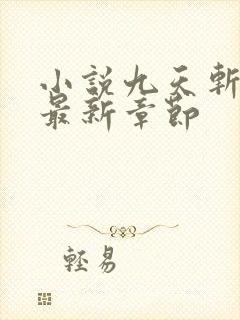 小說九天斬
最新章節
輕易